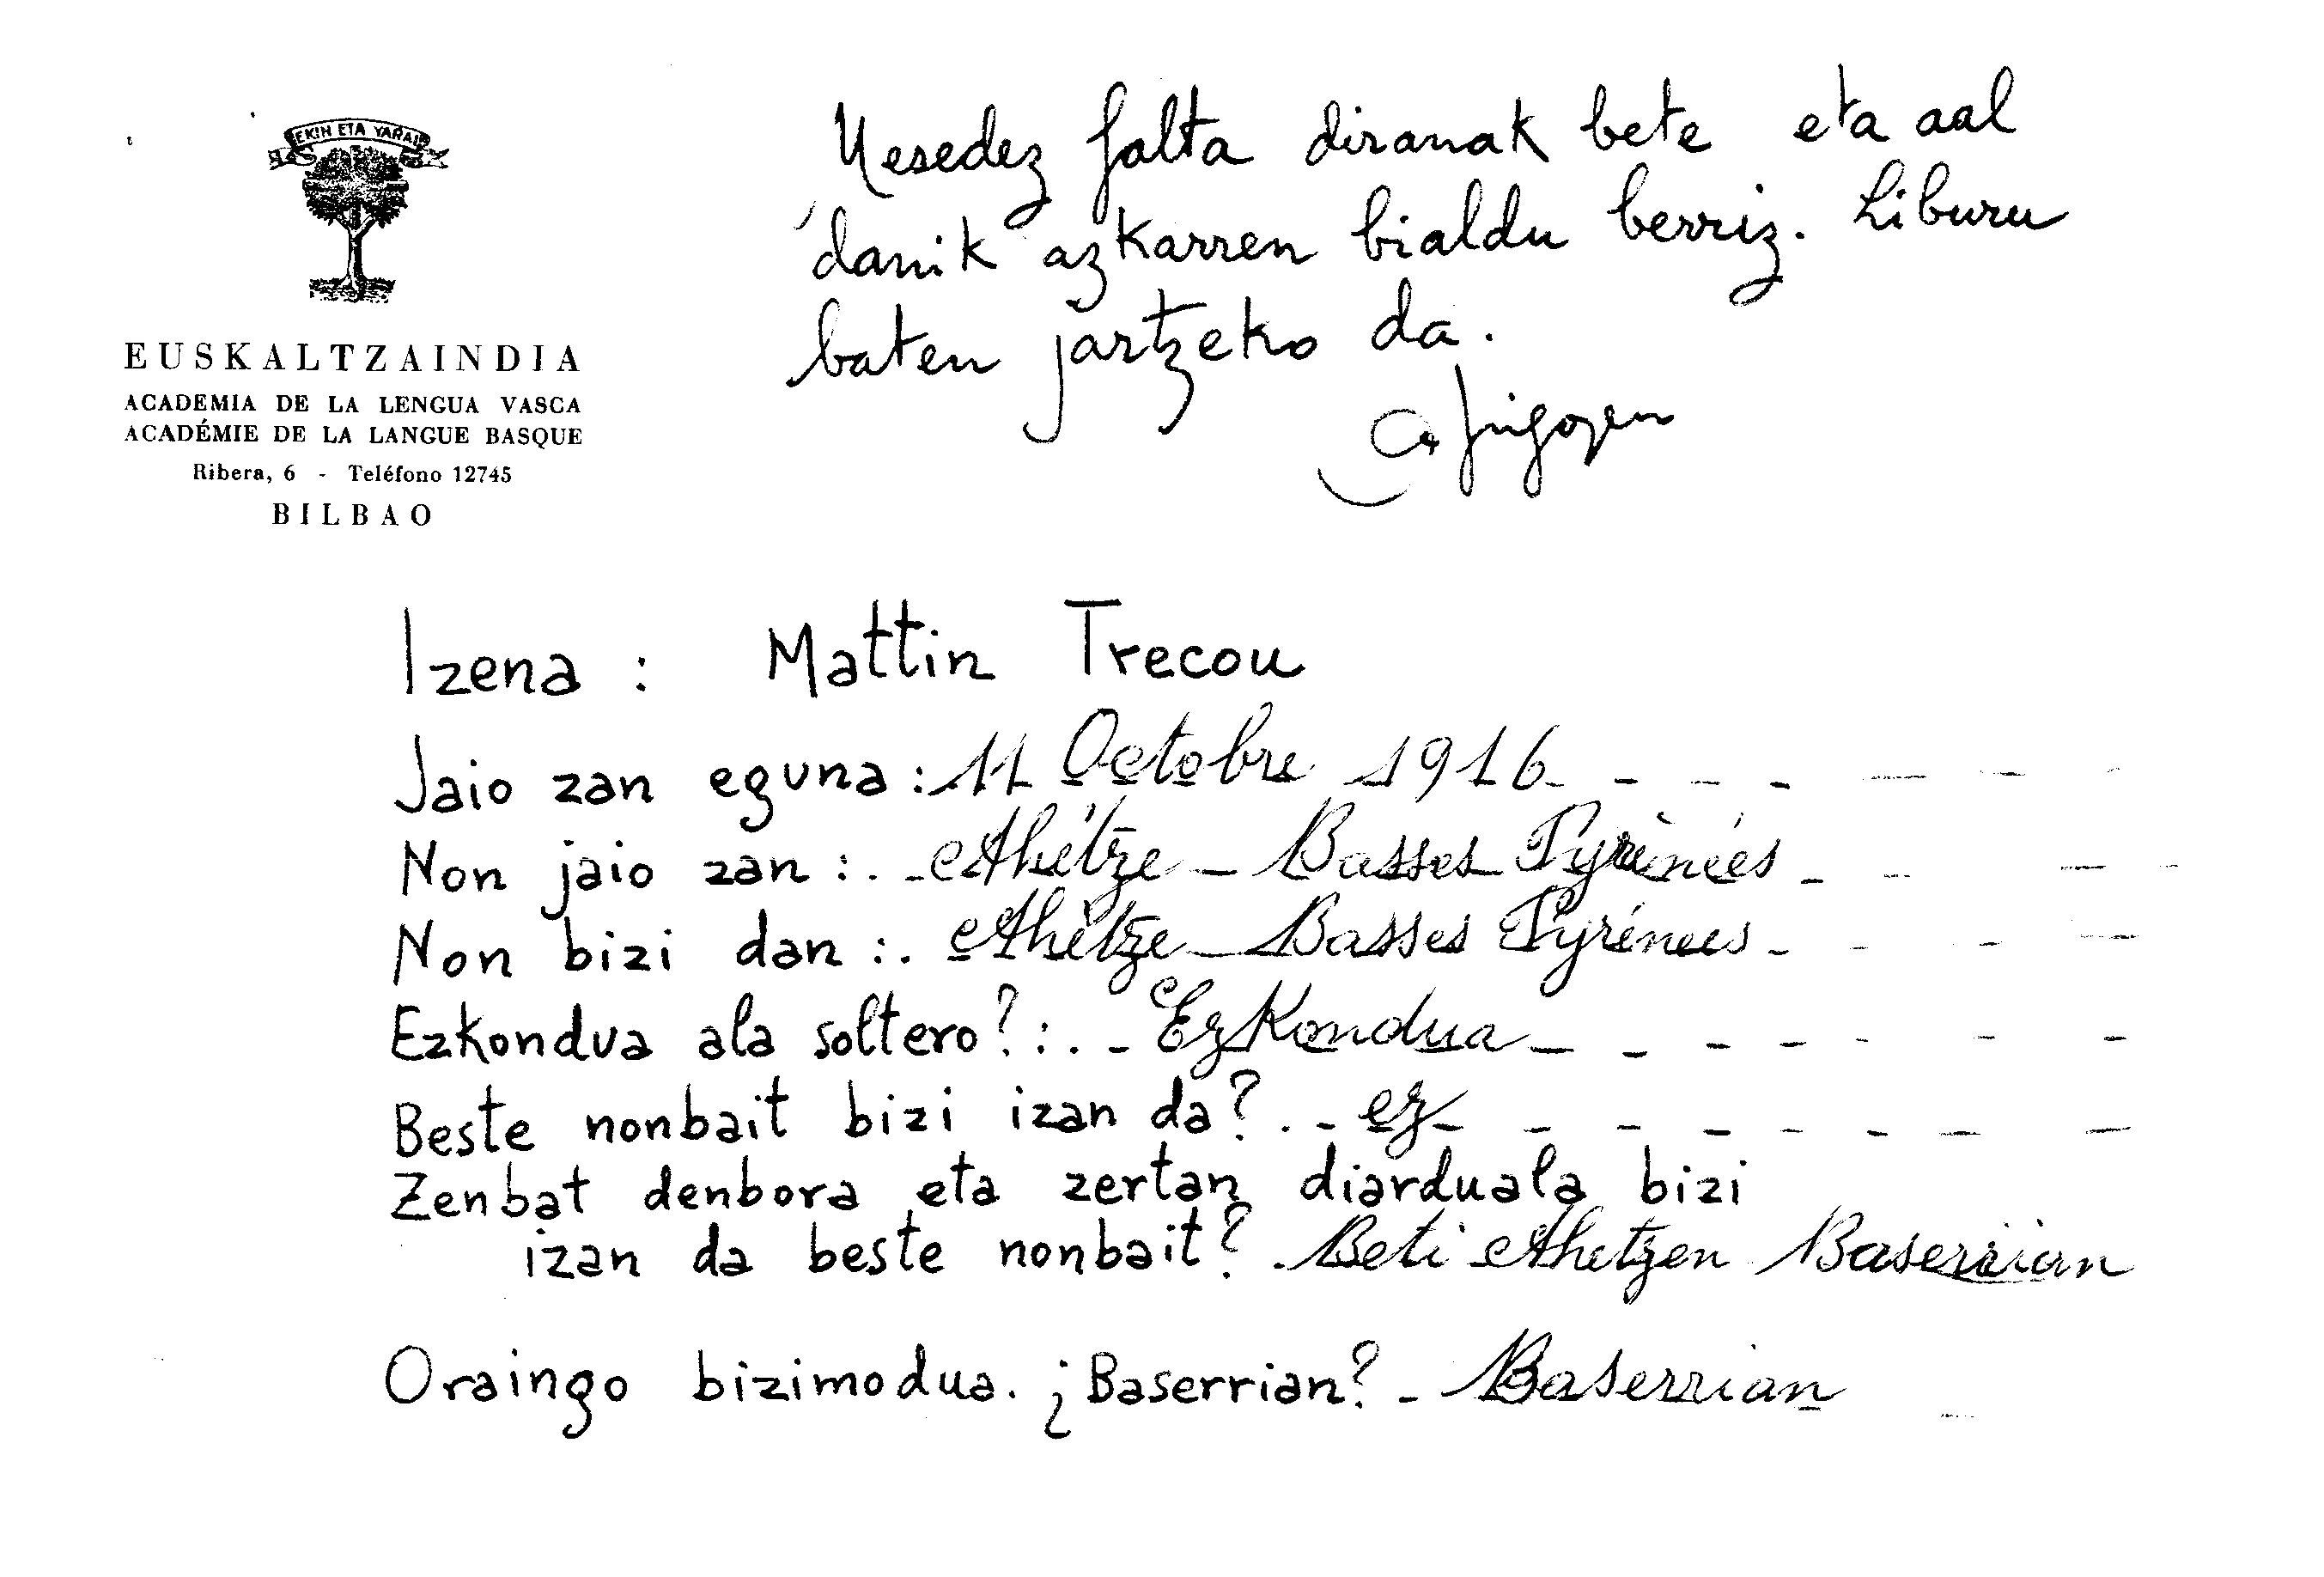 EKIN ETA YARAI
EUSKALTZAINDIA
ACADEMIA DE LA LENGUA VASCA
ACADÉMIE DE LA LANGUE BASQUE
Ribera, 6 - Teléfono 12745
BILBAO
Mesedez falta diranak bete eta aal
danik azkarren bialdu berriz. Liburu
baten jartzeko da.
Izena : Mattin Trecou
Jaio zan eguna : 11 Octobre 1916
Non jaio zan : Ahetze - Basses Pyrénées
Non bizi dan : Ahetze - Basses Pyrénées
Ezkondua ala soltero? : Ezkondua
Beste nonbait bizi izan da? ez
Zenbat denbora eta zertan diarduala bizi
izan da beste nonbait? Beti Ahetzen Baserrian
Oraingo bizimodua. ¿Baserrian? - Baserrian